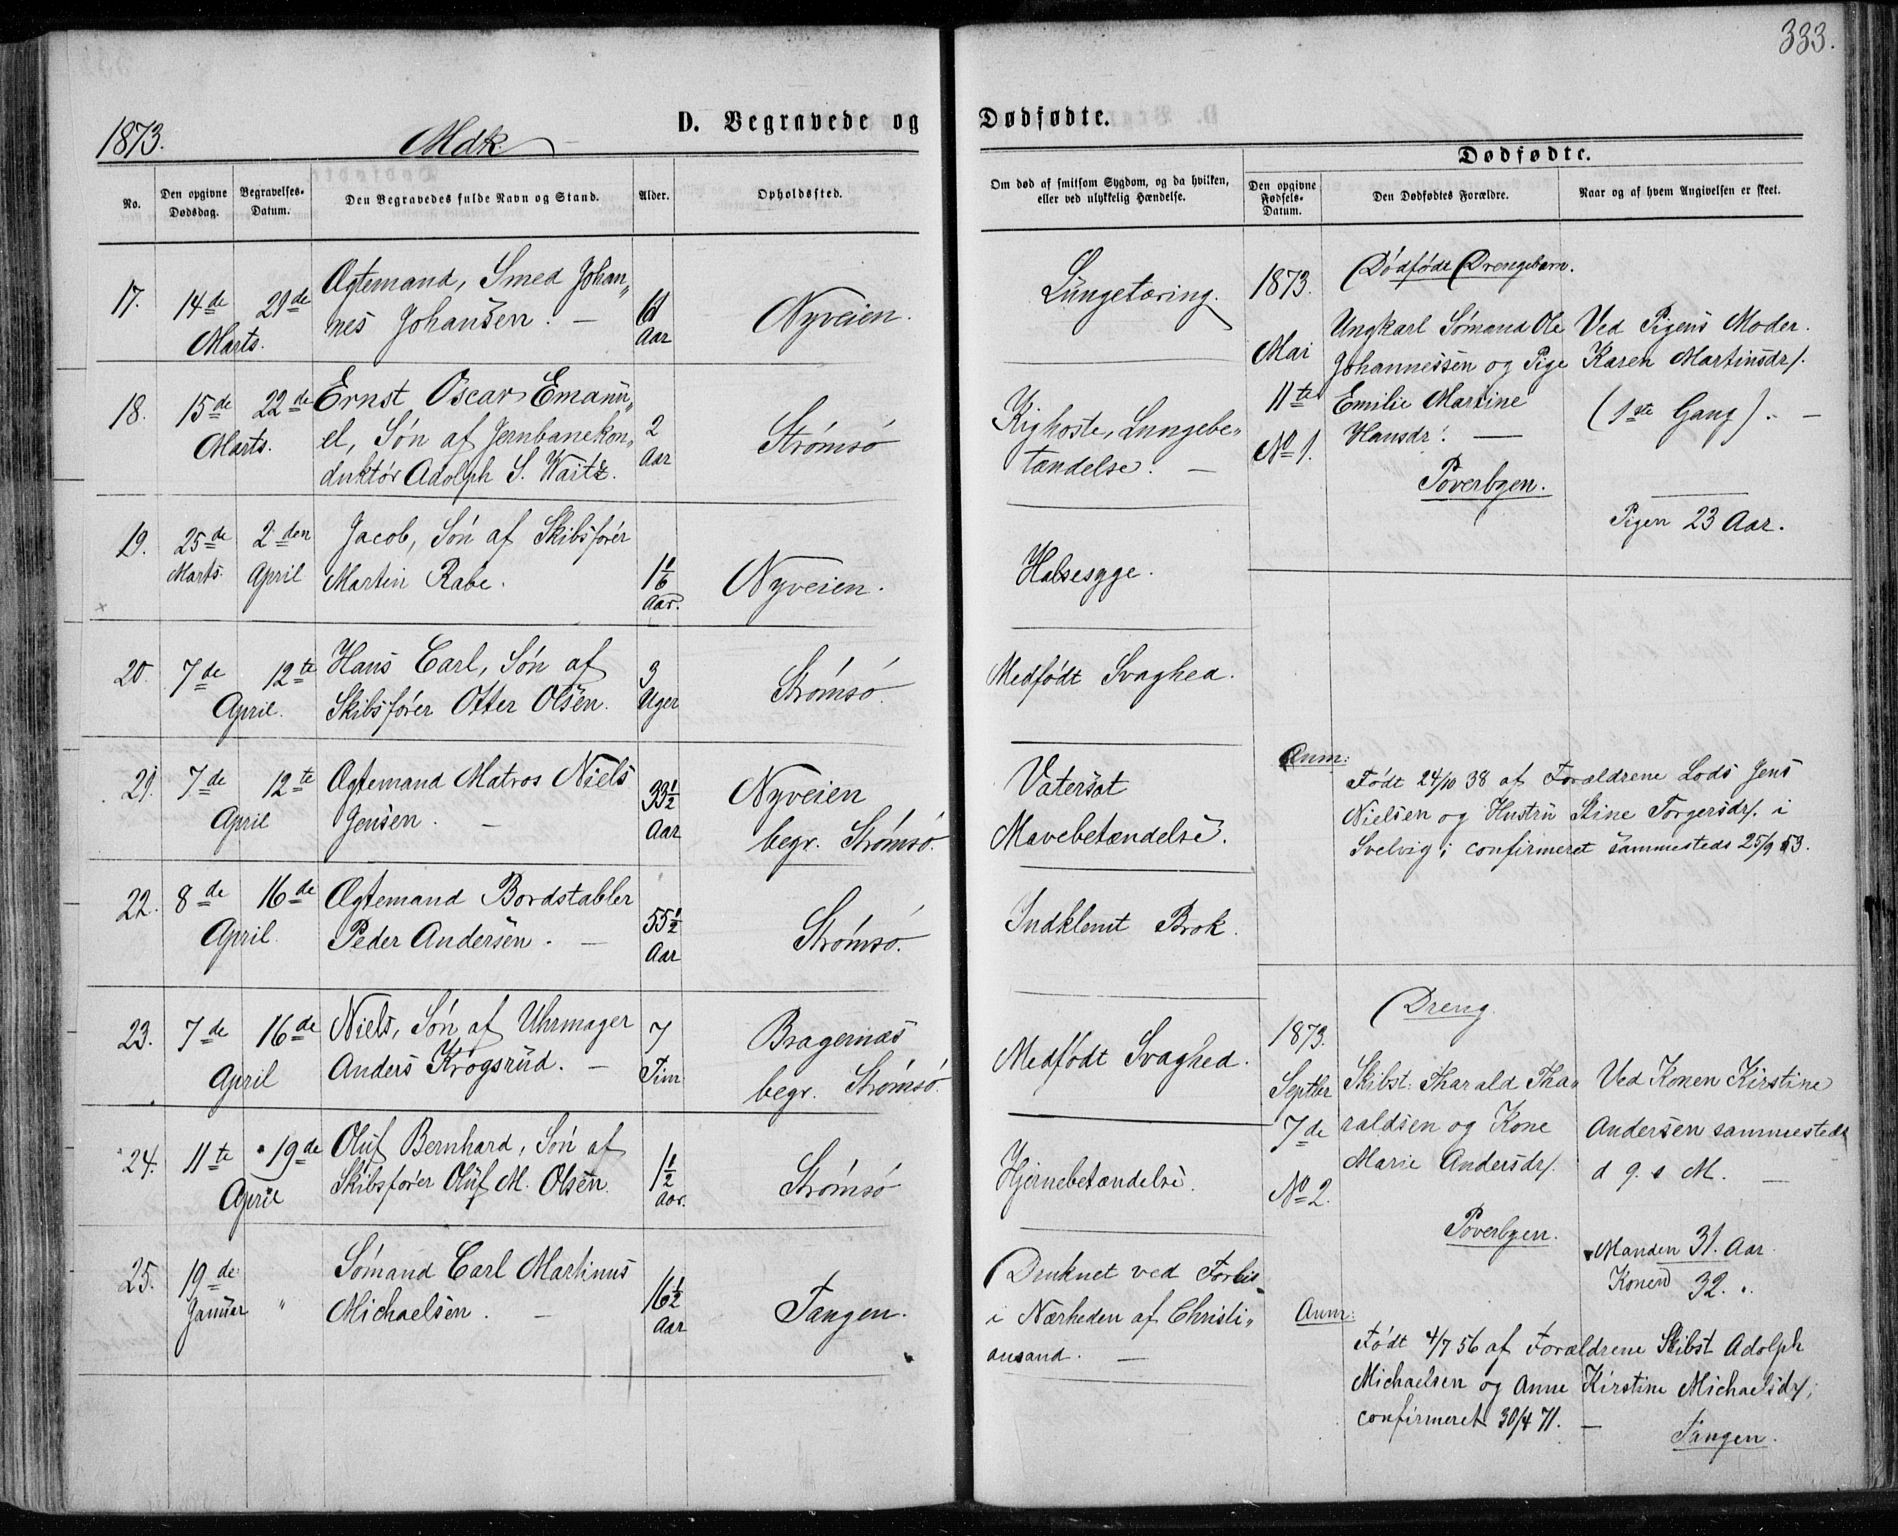 333.
1873. Mdk D. Begravede og Dødfødte.
No.
Den opgivne Dødsdag.
Begravelses-Datum.
Den Begravedes fulde Navn og Stand.
Alder.
Opholdssted.
Om død af smitsom Sygdom, og da hvilken,
eller ved ulykkelig Hændelse.
Dødfødte.
Den opgivne Fødsels-Datum.
Den Dødfødtes Forældre.
Naar og af hvem Angivelsen er skeet.
17. 14de 21de Marts.
Ægtemand, Smed Johan„
nes Johansen. —
61 Aar
Nyveien.
Lungetæring.
18. 15de 22de Marts.
Ernst Oscar Emanu„
el, Søn af Jernbanekon„
duktør Adolph S. Waitz.
2 Aar
Strømsø
Kighoste, Lungebe„
tændelse. —
19. 25de Marts 2den April
Jacob, Søn af Skibsfører
Martin Rabe.
1 1/6 Aar.
Nyveien.
Halsesyge.
20. 7de 12te April.
Hans Carl, Søn af
Skibsfører Otter Olsen.
3 Uger
Strømsø.
Medfødt Svaghed.
21. 7de 12te April
Ægtemand Matros Niels
Jensen. —
33 1/2 Aar
Nyveien
begr. Strømsø.
Vatersot
Mavebetændelse.
22. 8de 16de April.
Ægtemand Bordstabler
Peder Andersen. —
55 1/2 Aar
Strømsø.
Indklemt Brok.
23. 7de 16de April
Niels, Søn af Uhrmager
Anders Krogsrud. —
7 Tim
Bragernæs
begr. Strømsø.
Medfødt Svaghed.
24. 11te 19de April
Oluf Bernhard, Søn af
Skibsfører Oluf M. Olsen.
1 1/2 Aar.
Strømsø
Hjernebetændelse.
25. 19de Januar "
Sømand Carl Martinus
Michaelsen. —
16 1/2 Aar
Tangen.
Druknet ved Forlis
i Nærheden af Christi„
ansand. —
1873. Mai 11te No 1.
Dødfødt Drengebarn.
Ungkarl Sømand Ole
Johannessen og Pige
Emilie Martine
Hansdr. —
Poverbyen.
Ved Pigens Moder
Karen Martinsdr.
(1ste Gang). —
Pigen 23 Aar.
Anm:
Født 24/10 38 af Forældrene Lods Jens
Nielsen og Hustru Stine Torgersdr. i
Svelvig; confirmeret sammesteds 25/9 53.
1873. Septbr 7de No 2.
Dreng.
Skibst. Tharald Tha„
raldsen og Kone
Marie Andersdr.
Poverbyen.
Ved Konen Kirstine
Andersen sammesteds
d 9. s M. —
Manden 31. Aar.
Konen 32. „
Anm:
Født 4/7 56 af Forældrene Skibst Adolph
Michaelsen og Anne Kirstine Michaelsdr;
confirmeret 30/4 71. —
Tangen.